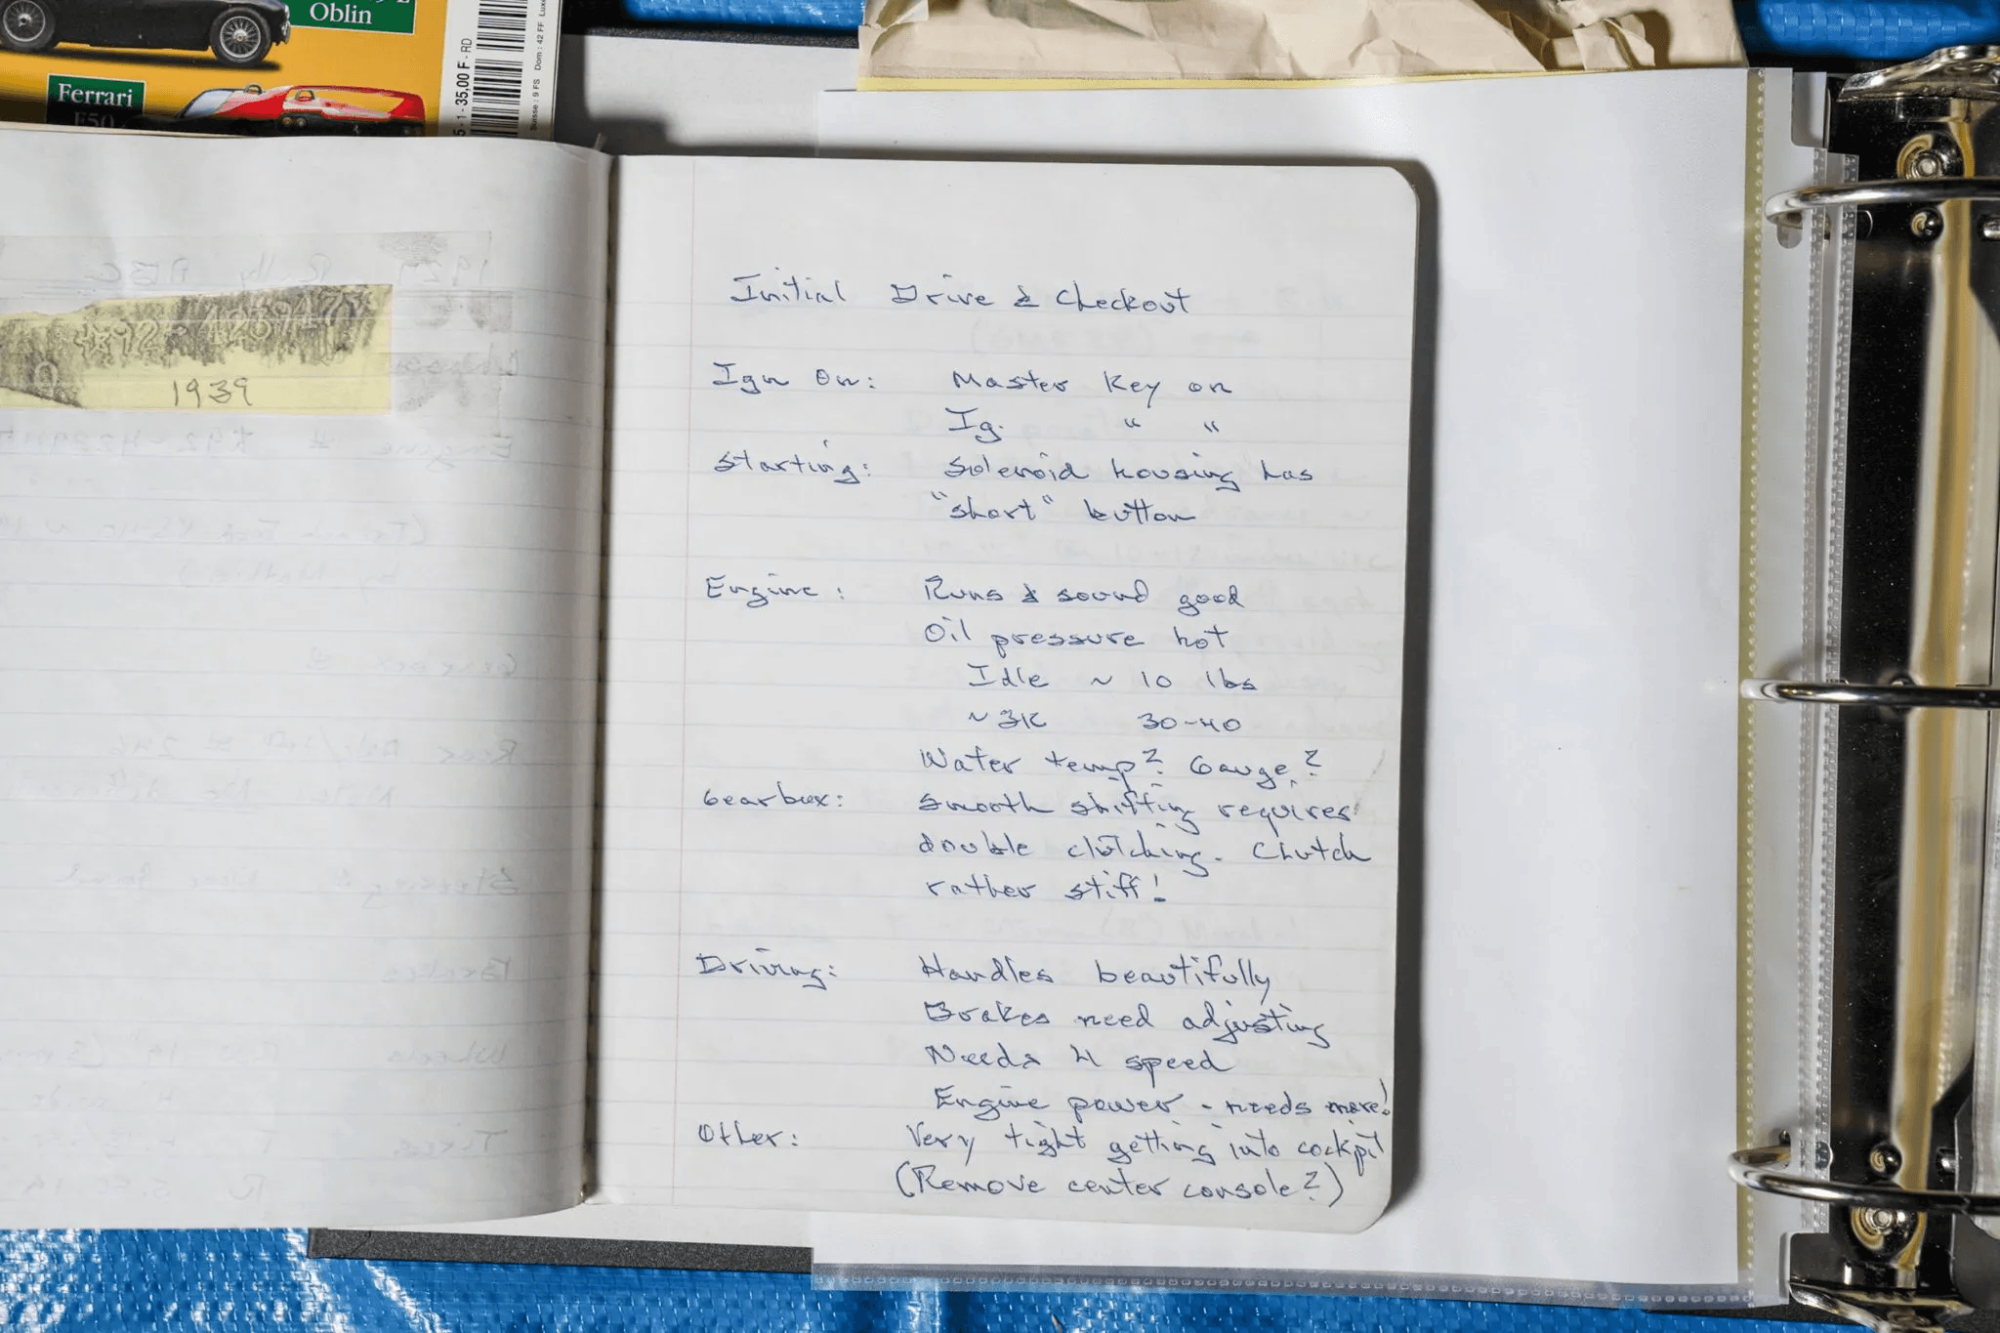 Oblin
Ferrari
F50
5 - 1 - 35,00 F - RD
Suisse : 9 FS Dom : 42 FF Lux
1939
Initial Drive & Checkout
Ign On: Master Key on
Ig. " "
Starting: Solenoid housing has
"short" button
Engine: Runs & sound good
Oil pressure hot
Idle ~ 10 lbs
~ 3K 30-40
Water temp? Gauge?
Gearbox: Smooth shifting requires
double clutching. Clutch
rather stiff!
Driving: Handles beautifully
Brakes need adjusting
Needs 4 speed
Engine power - needs more!
Other: Very tight getting into cockpit
(Remove center console?)